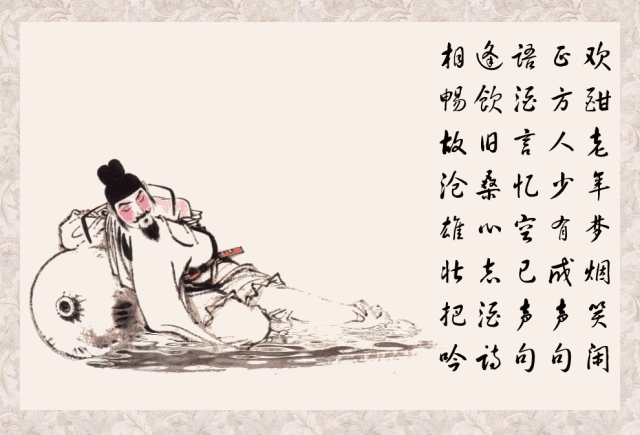 相逢语正欢
畅饮酒方酣
故旧言人老
沧桑忆少年
雄心空有梦
壮志已成烟
把酒声声笑
吟诗句句闲